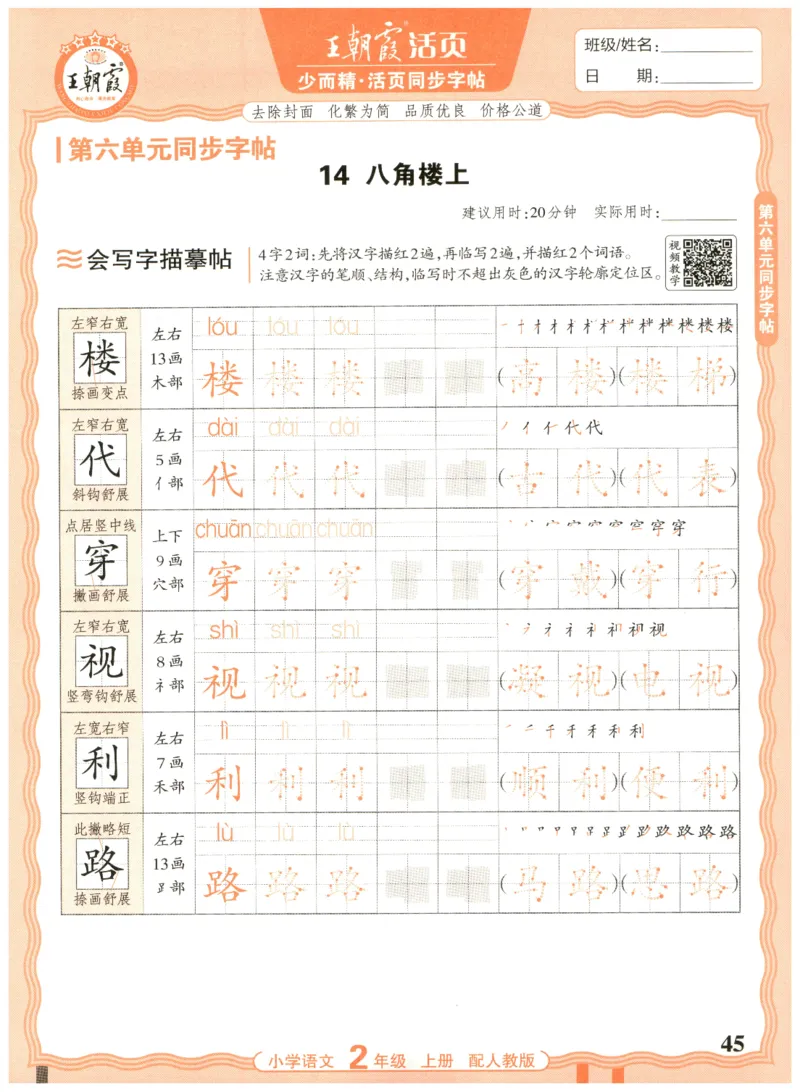 王朝霞
王朝霞®活页
少而精·活页同步字帖
班级/姓名：
日 期：
去除封面 化繁为简 品质优良 价格公道
第六单元同步字帖
14 八角楼上
建议用时:20分钟 实际用时:
会写字描摹帖
4字2词:先将汉字描红2遍,再临写2遍,并描红2个词语。
注意汉字的笔顺、结构,临写时不超出灰色的汉字轮廓定位区。
视频教学
第六单元同步字帖
左窄右宽
楼
捺画变点
左右
13画
木部
lóu lóu lóu
楼 楼 楼 (高 楼)(楼 梯)
左窄右宽
代
斜钩舒展
左右
5画
亻部
dài dài dài
代 代 代 (古 代)(代 表)
点居竖中线
穿
撇画舒展
上下
9画
穴部
chuān chuān chuān
穿 穿 穿 (穿 戴)(穿 行)
左窄右宽
视
竖弯钩舒展
左右
8画
礻部
shì shì shì
视 视 视 (凝 视)(电 视)
左宽右窄
利
竖钩端正
左右
7画
禾部
lì lì lì
利 利 利 (顺 利)(便 利)
此撇略短
路
捺画舒展
左右
13画
⻊部
lù lù lù
路 路 路 (马 路)(思 路)
45
小学语文 2年级 上册 配人教版